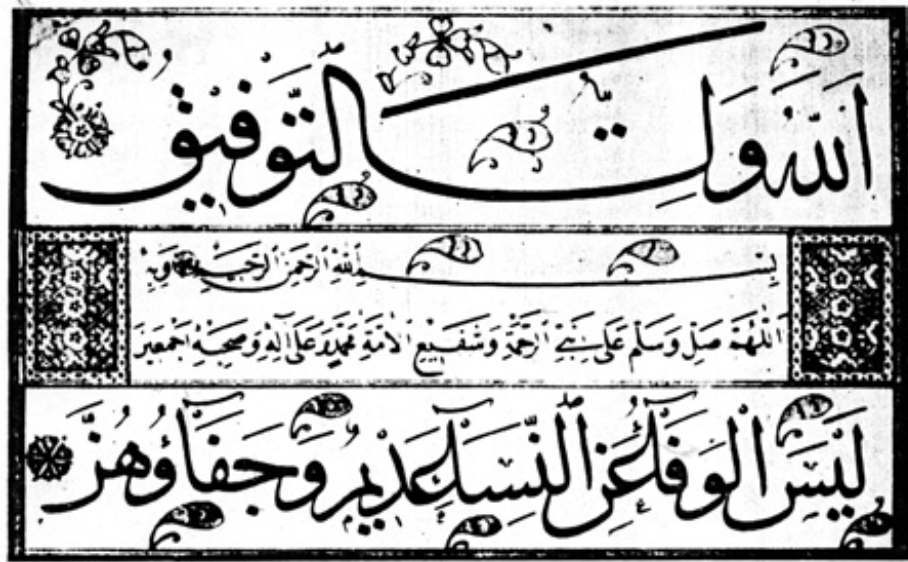 اَللهُ وَلِيُّ التَّوْفِيْقِ
بِسْمِ اللهِ الرَّحْمٰنِ الرَّحِيْمِ وَبِهِ
اَللّٰهُمَّ صَلِّ وَسَلِّمْ عَلٰى نَبِيِّ الرَّحْمَةِ وَشَفِيْعِ الْأُمَّةِ مُحَمَّدٍ وَعَلٰى آلِهِ وَصَحْبِهِ اَجْمَعِيْنَ
لَيْسَ الْوَفَآءُ عَنِ النِّسَآءِ عَدِيْمُ وَجَفَآؤُهُنَّ